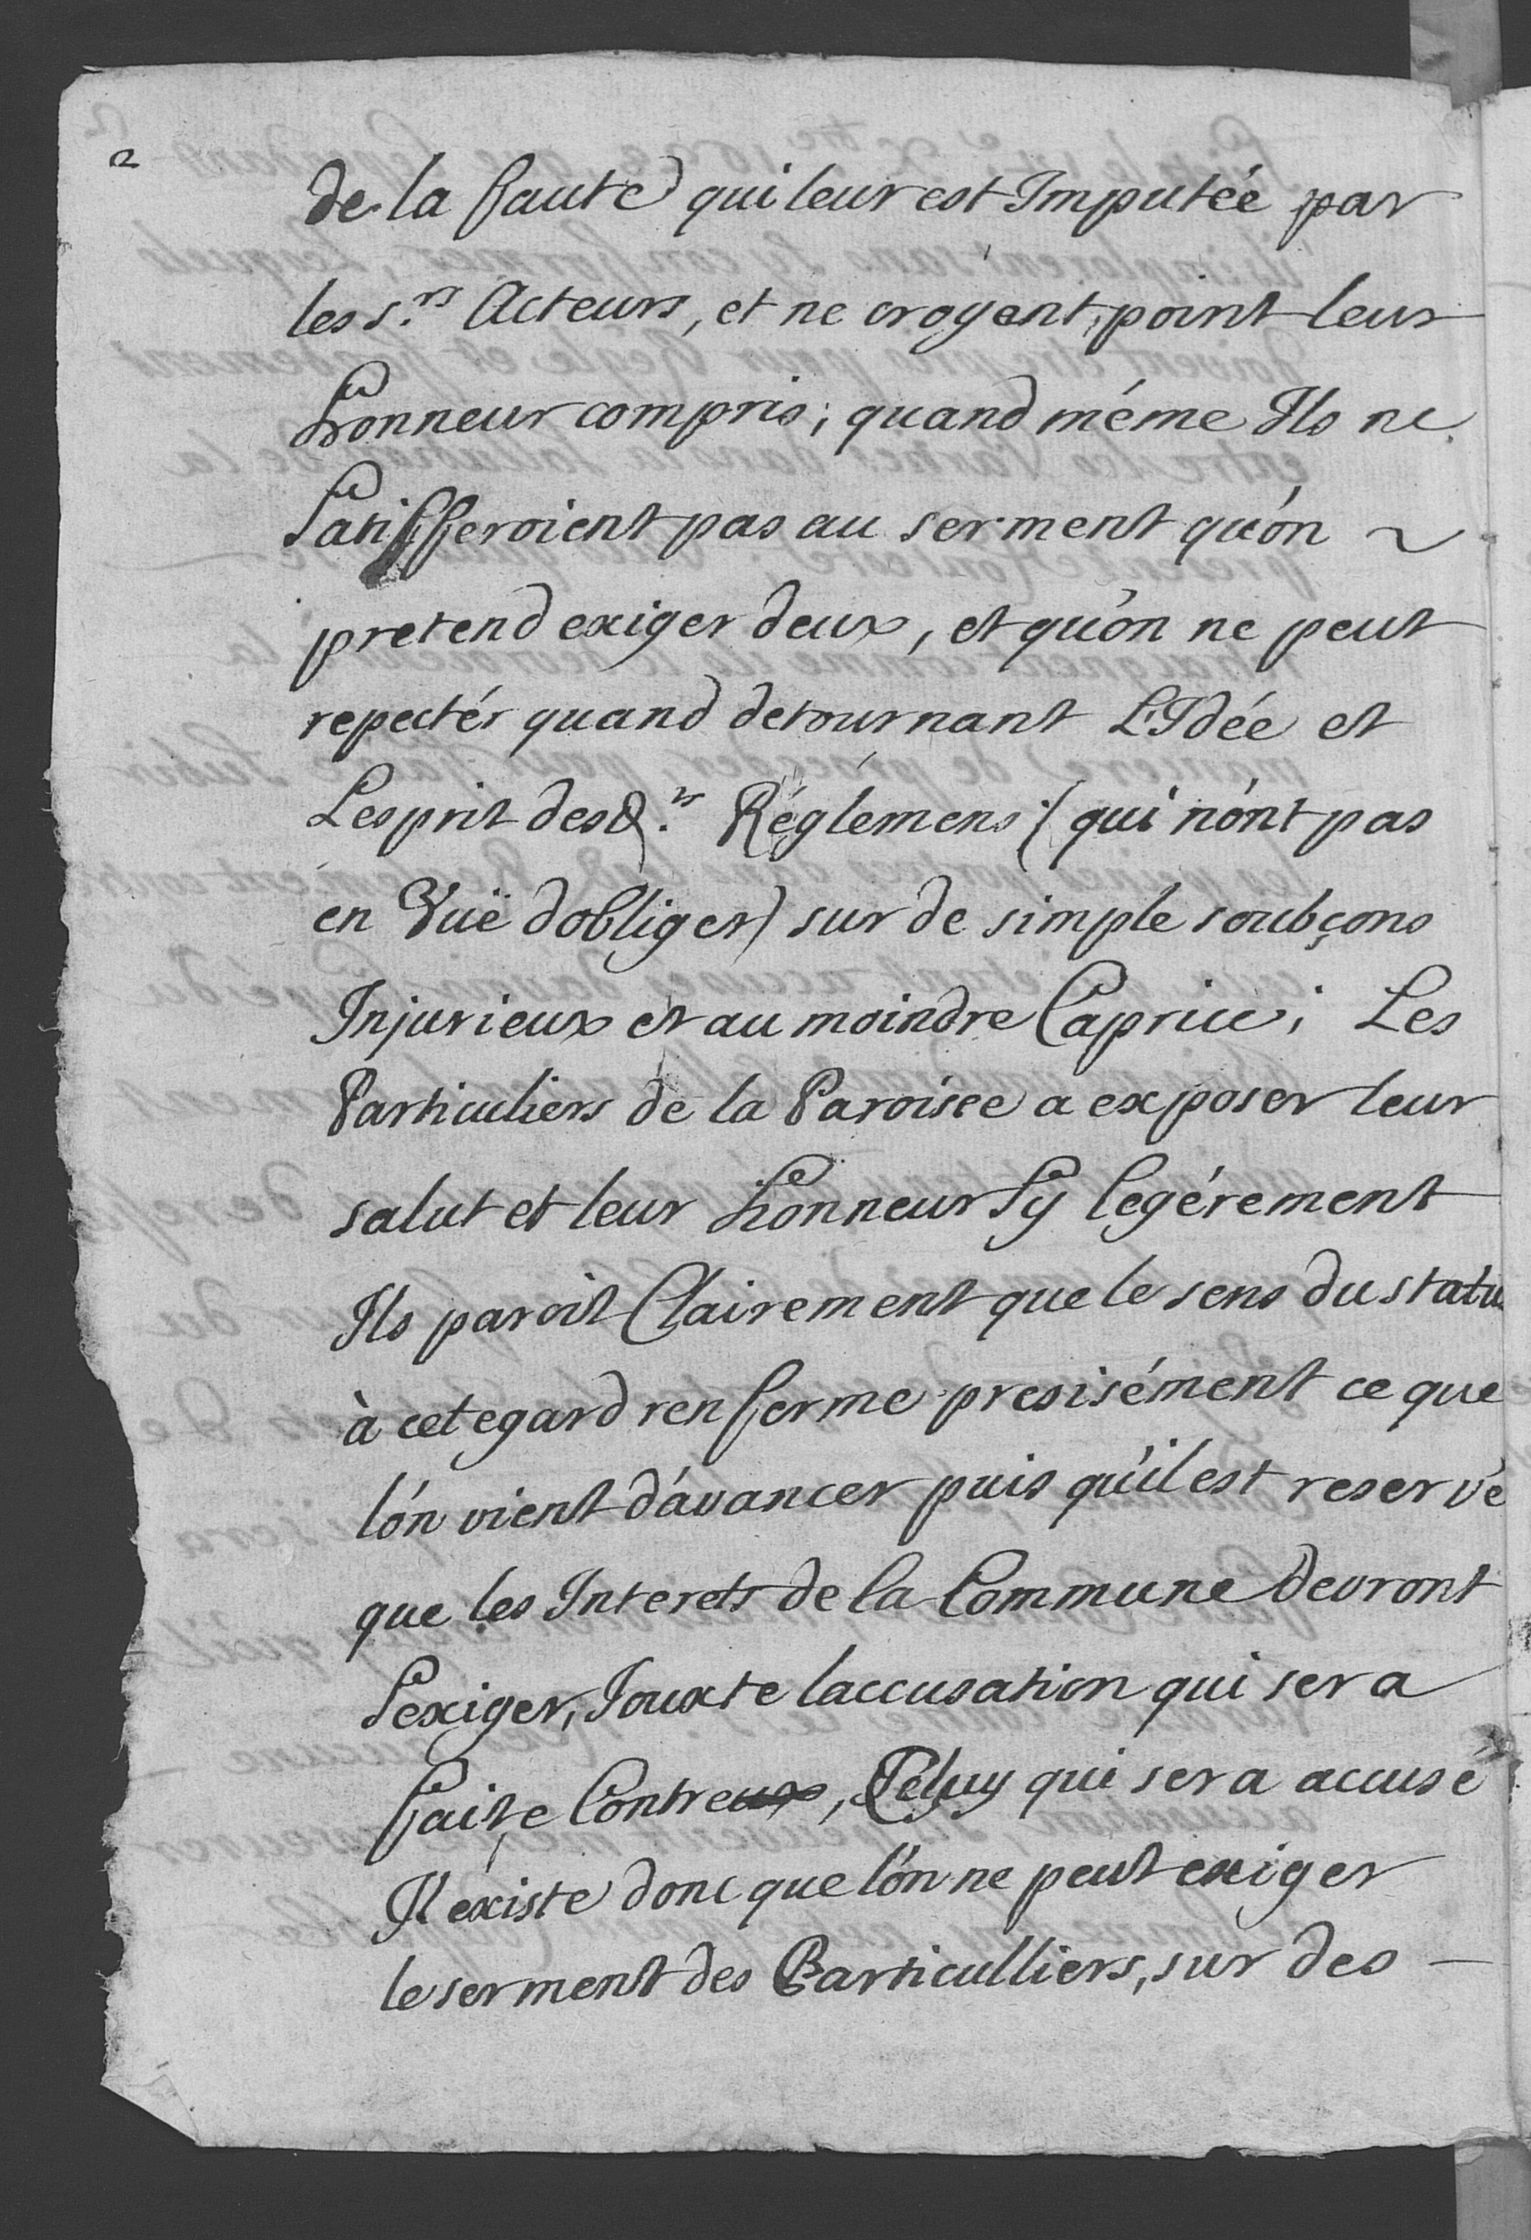 2
de la faute qui leur est Imputée par
les s.rs Acteurs, et ne croyent point leur
honneur compris; quand méme Ils ne
Satifferoient pas au serment qu'on ~
pretend exiger deux, et qu'on ne peut
repectér quand detournant L'Idée et
Lesprit desd.ts Réglemens (qui nónt pas
en Vuë dobliger) sur de simple soubçons
Injurieux et au moindre Caprice; Les
Particuliers de la Paroisce a exposer leur
salut et leur honneur Sy legérement
Ils paroit Clairement que le sens du statu
à cet egard renferme presisément ce que
lón vient dávancer puis qu'il est reservé
que les Interets de la Commune Devront
Lexiger, Jouxte laccusation qui sera
faite Contreux, Celuy qui sera accusé
Il existe donc que lón ne peut exiger
le serment des Particulliers, sur des —